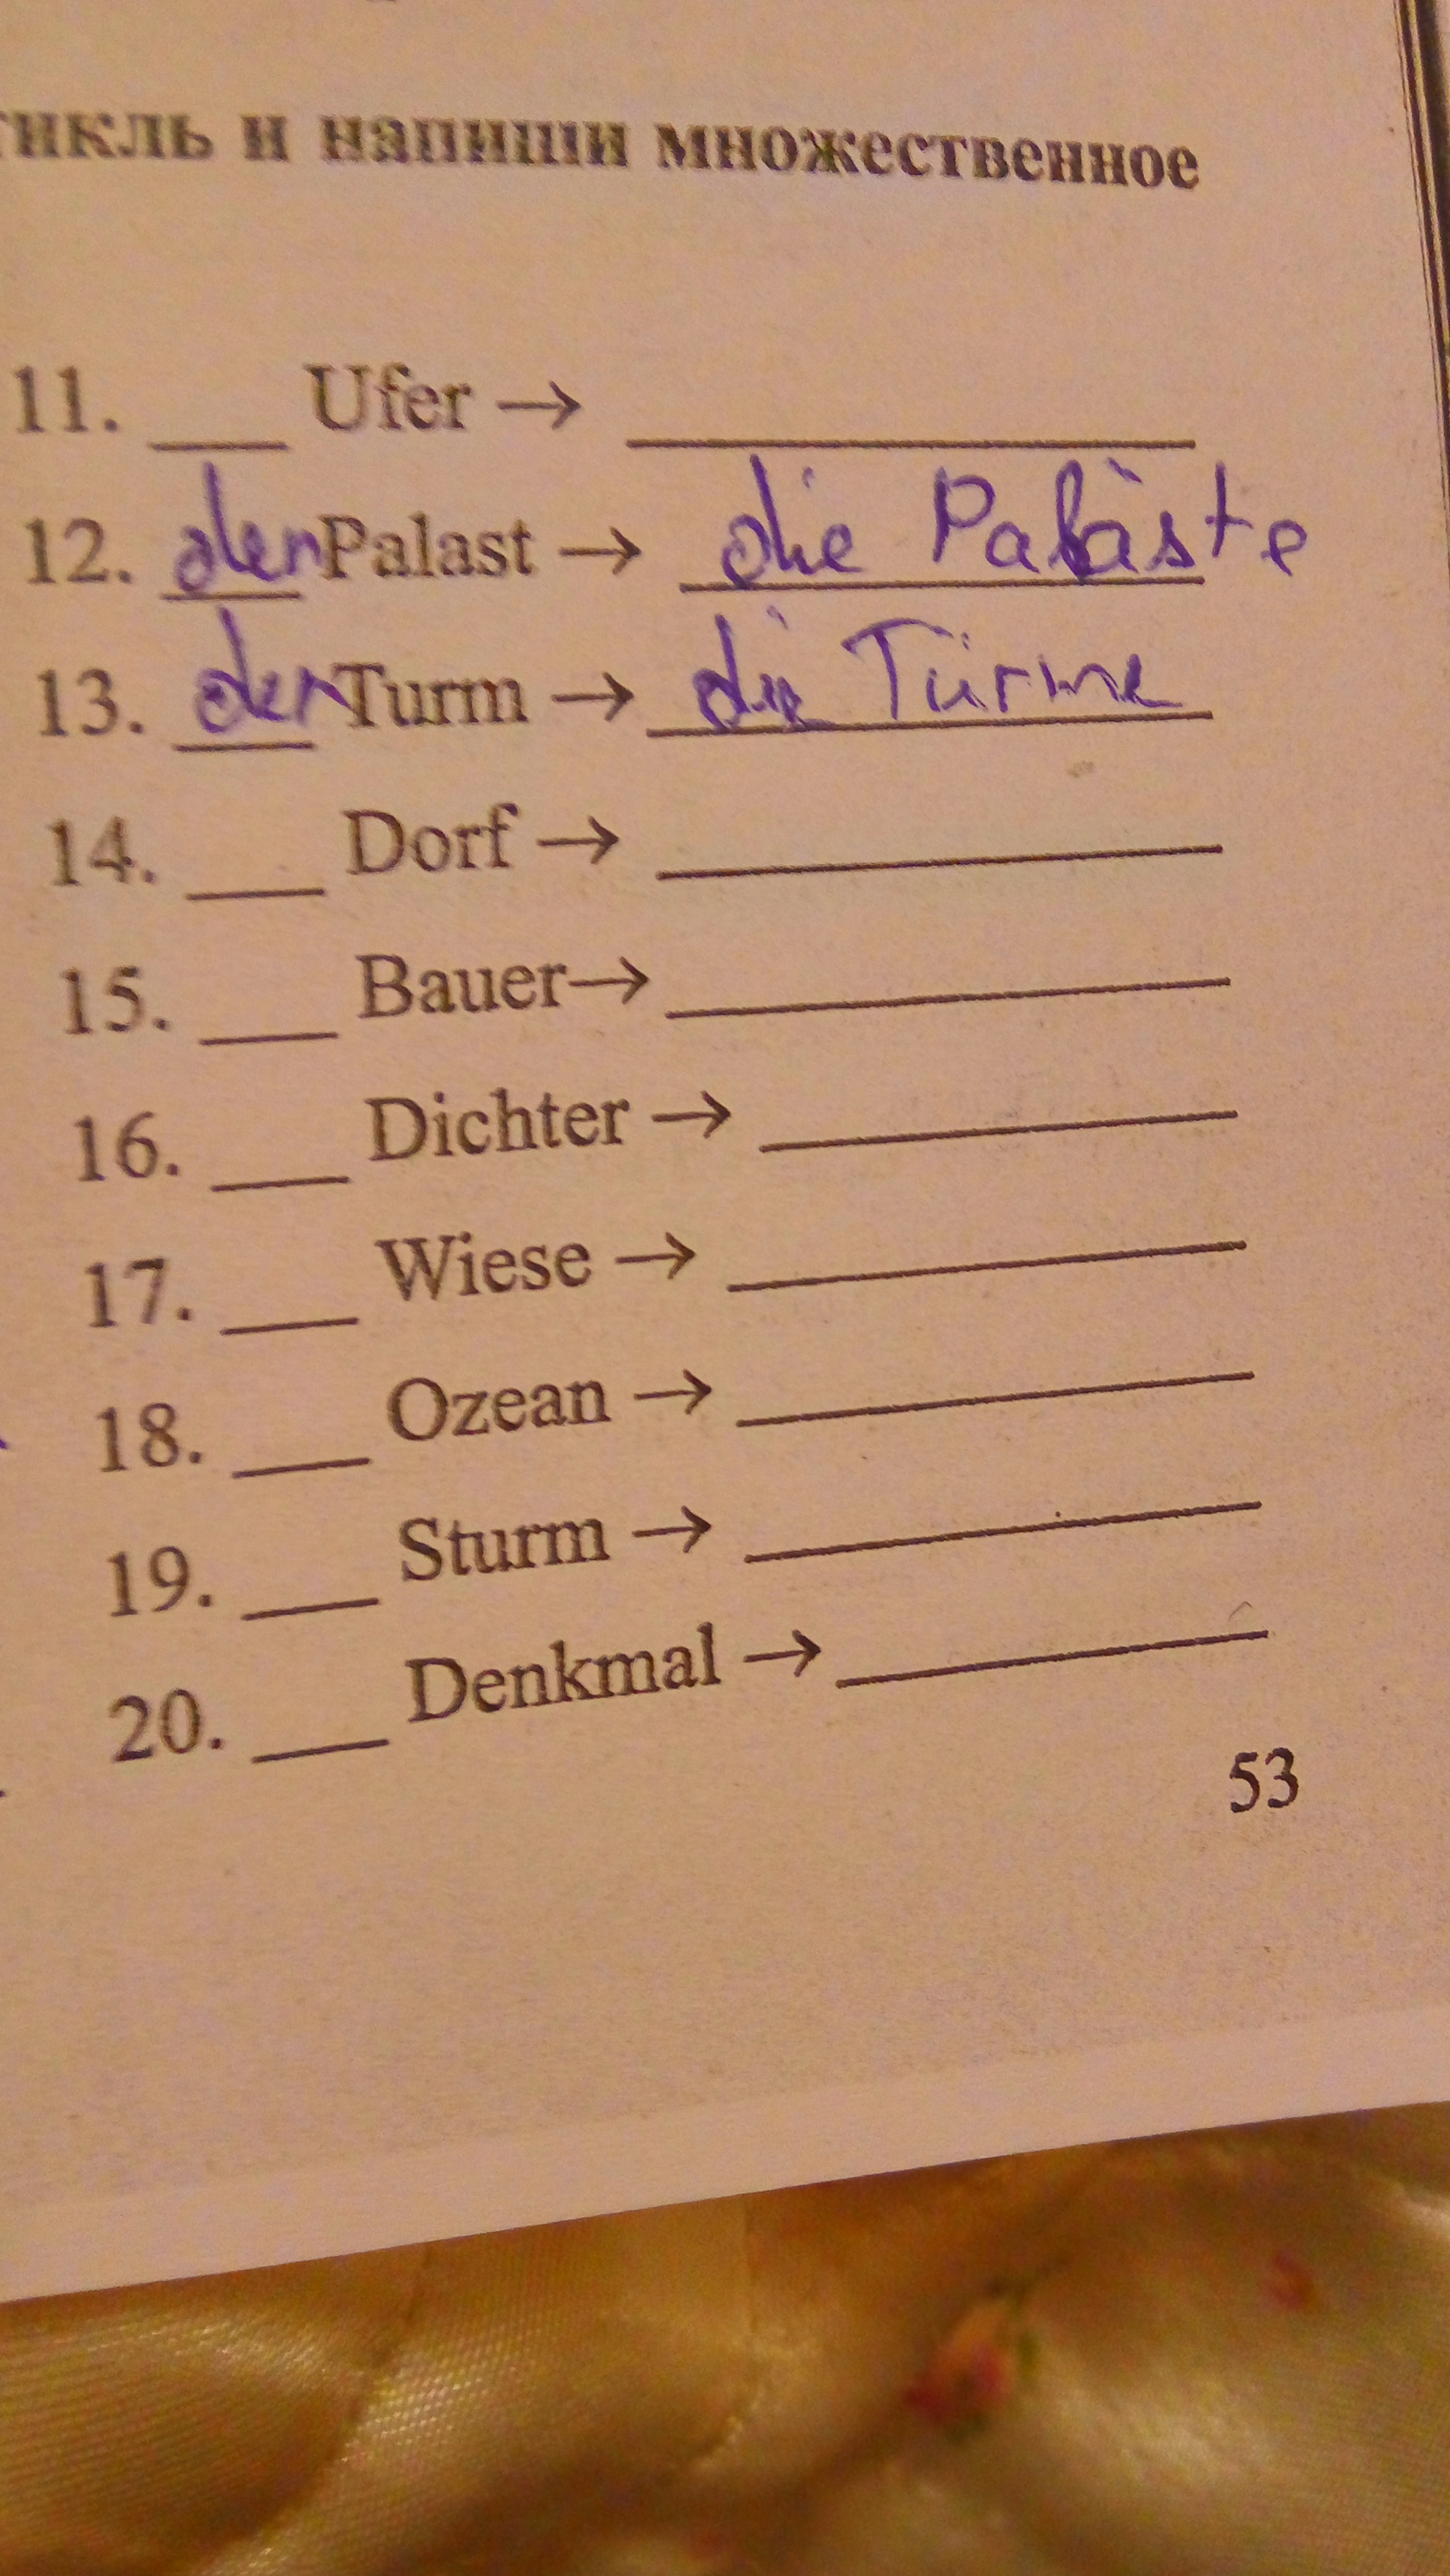 тикль и напиши множественное
11. ___ Ufer → ___
12. der Palast → die Paläste
13. der Turm → die Türme
14. ___ Dorf → ___
15. ___ Bauer → ___
16. ___ Dichter → ___
17. ___ Wiese → ___
18. ___ Ozean → ___
19. ___ Sturm → ___
20. ___ Denkmal → ___
53